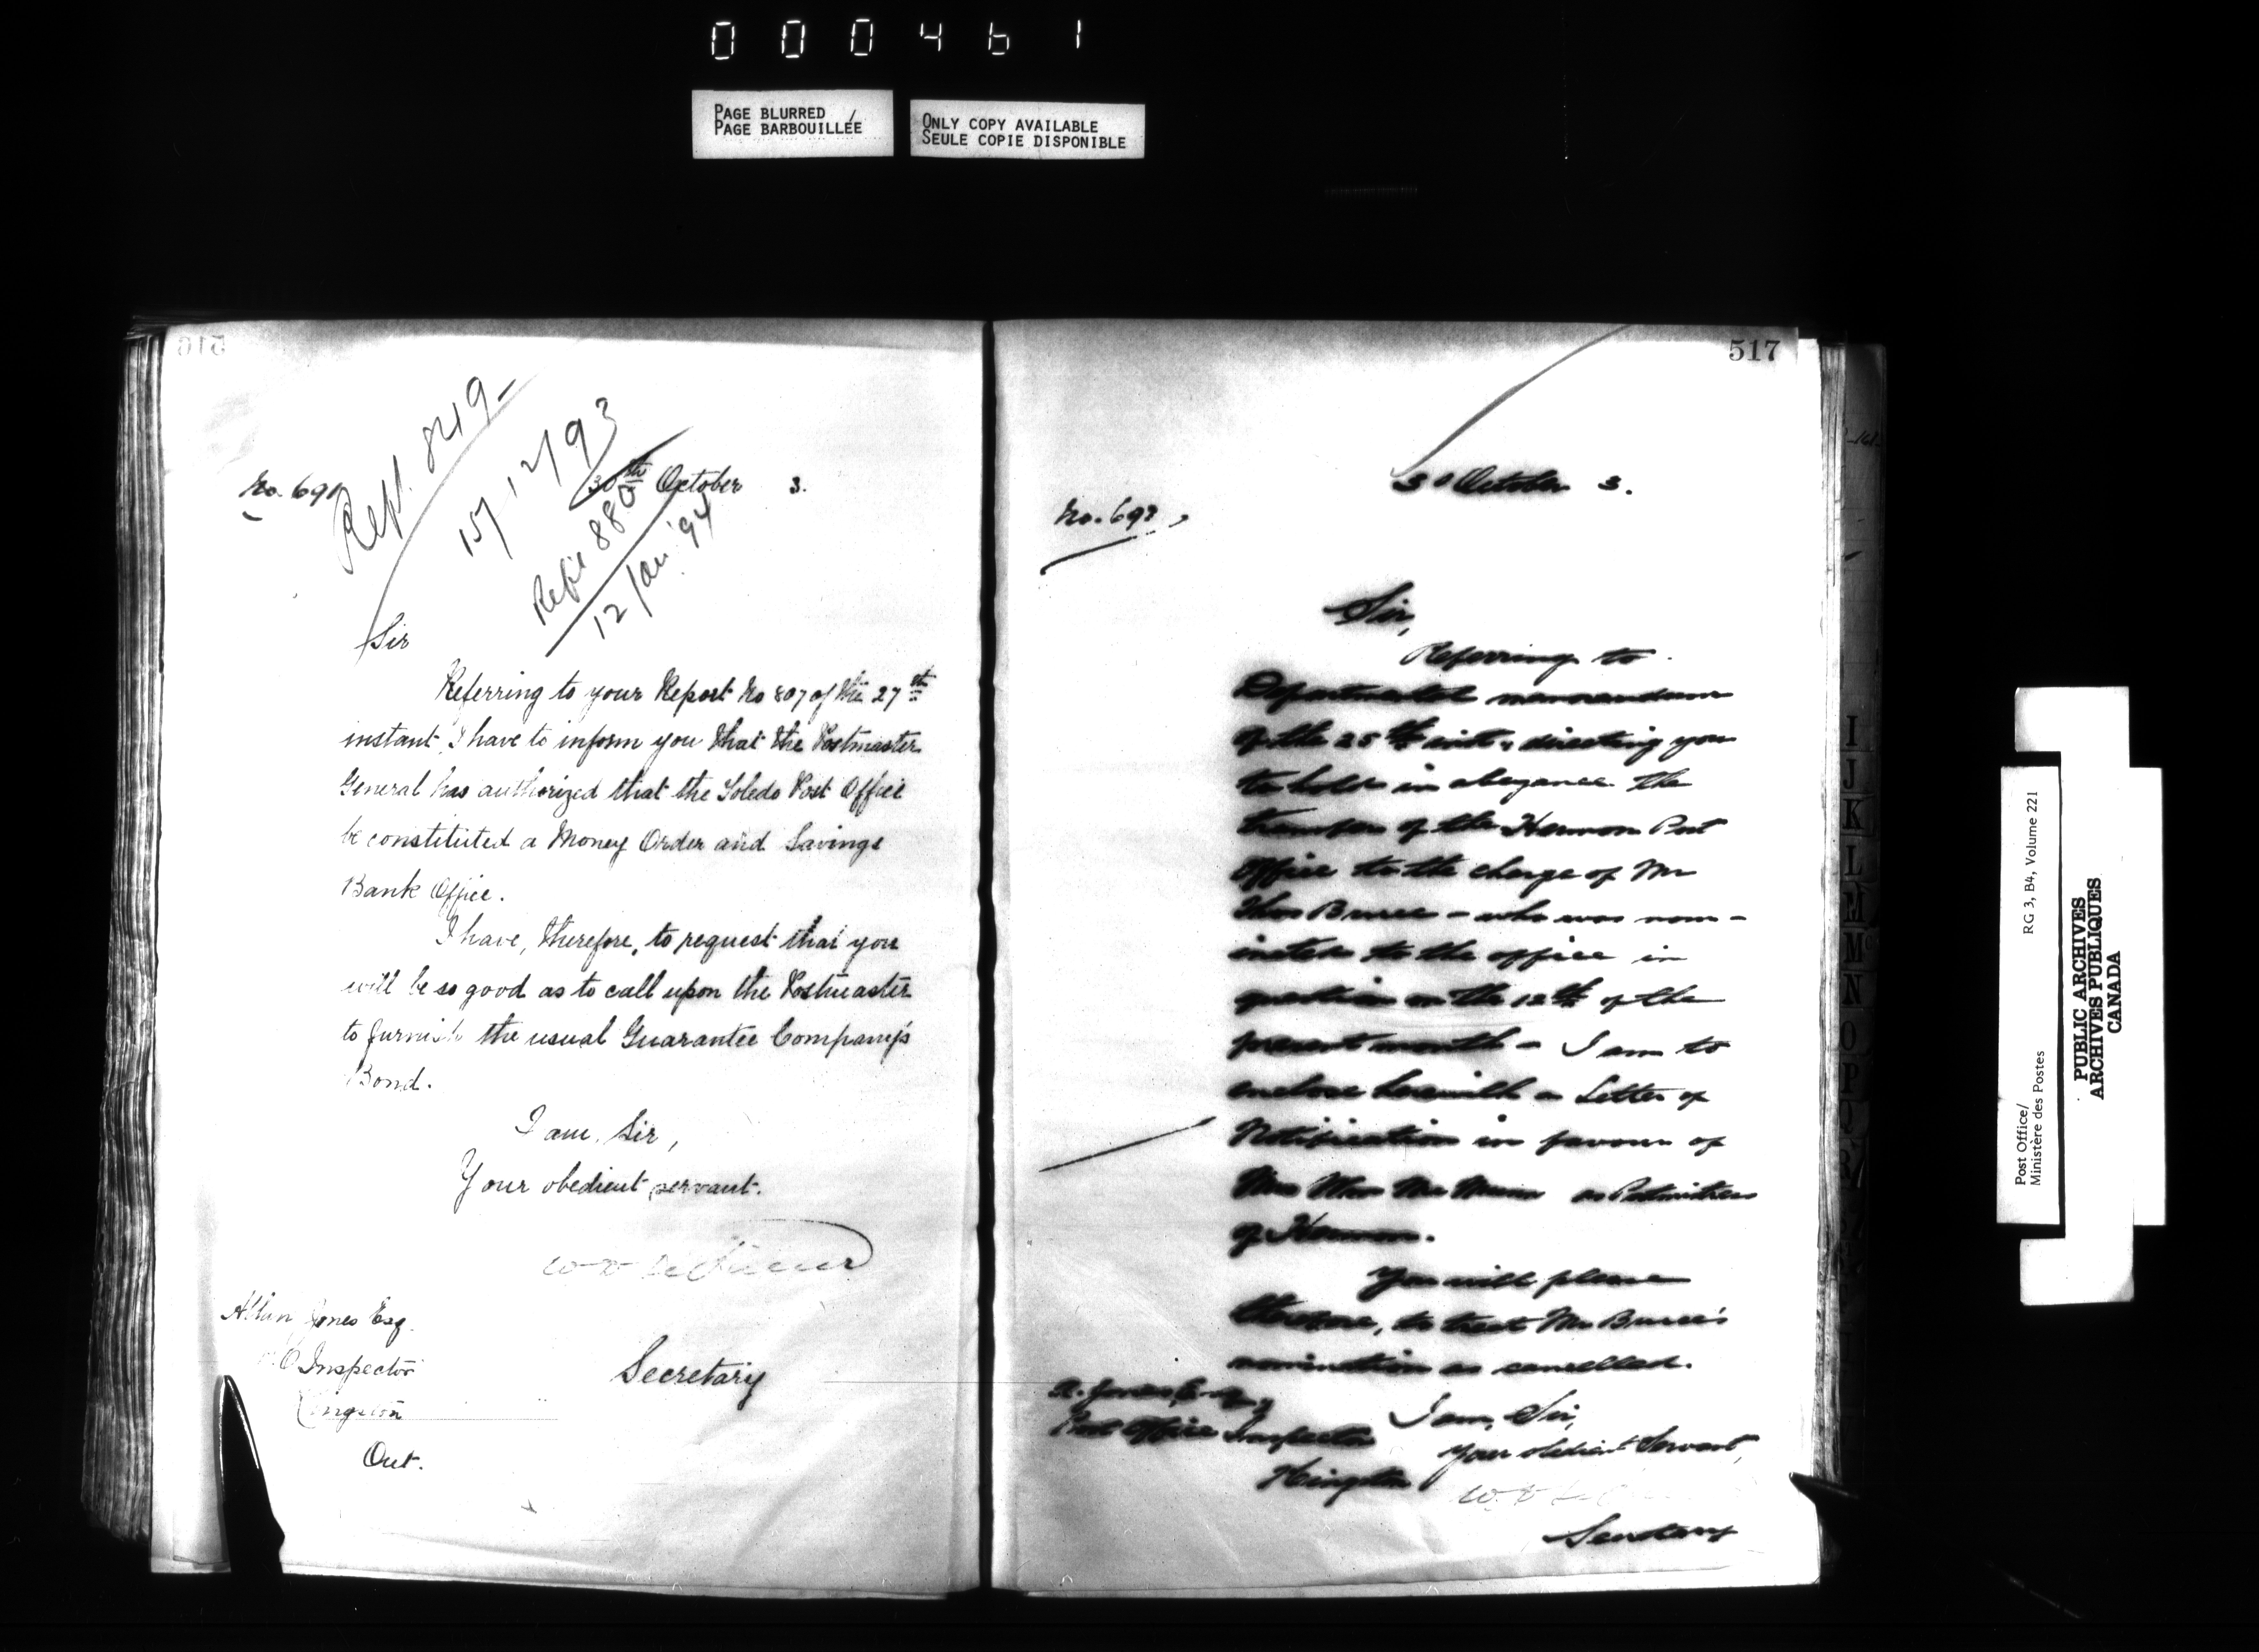 000461
PAGE BLURRED /
PAGE BARBOUILLÉE
ONLY COPY AVAILABLE
SEULE COPIE DISPONIBLE
516
Rept. 8219-
15/12/93
No. 691
30th October 3.
Refce 880
12/Jan '94
Sir
Referring to your Report No 807 of the 27th
instant, I have to inform you that the Postmaster
General has authorized that the Toledo Post Office
be constituted a Money Order and Savings
Bank Office.
I have, therefore, to request that you
will be so good as to call upon the Postmaster
to furnish the usual Guarantee Company's
Bond.
I am, Sir,
Your obedient servant.
Allan Jones Esq.
P.O. Inspector
Kingston
Out.
Secretary
517
October 3.
No. 692,
Sir,
Referring to
Departmental memorandum
of the 25th inst., directing you
to hold in abeyance the
transfer of the Hermon Post
Office to the charge of Mr
Thos Bruce - who was nom-
inated to the office in
question on the 12th of the
present month - I am to
enclose herewith a Letter of
Notification in favour of
Mrs as Postmistress
of Hermon.
You will please
therefore, to treat Mr Bruce's
nomination as cancelled.
A. Jones, Esq.,
Post Office Inspector
Kingston
I am, Sir,
Your obedient Servant,
Secretary
I
J
K
L
M
Mc
N
O
P
Q
R
Post Office/
Ministère des Postes
RG 3, B4, Volume 221
PUBLIC ARCHIVES
ARCHIVES PUBLIQUES
CANADA